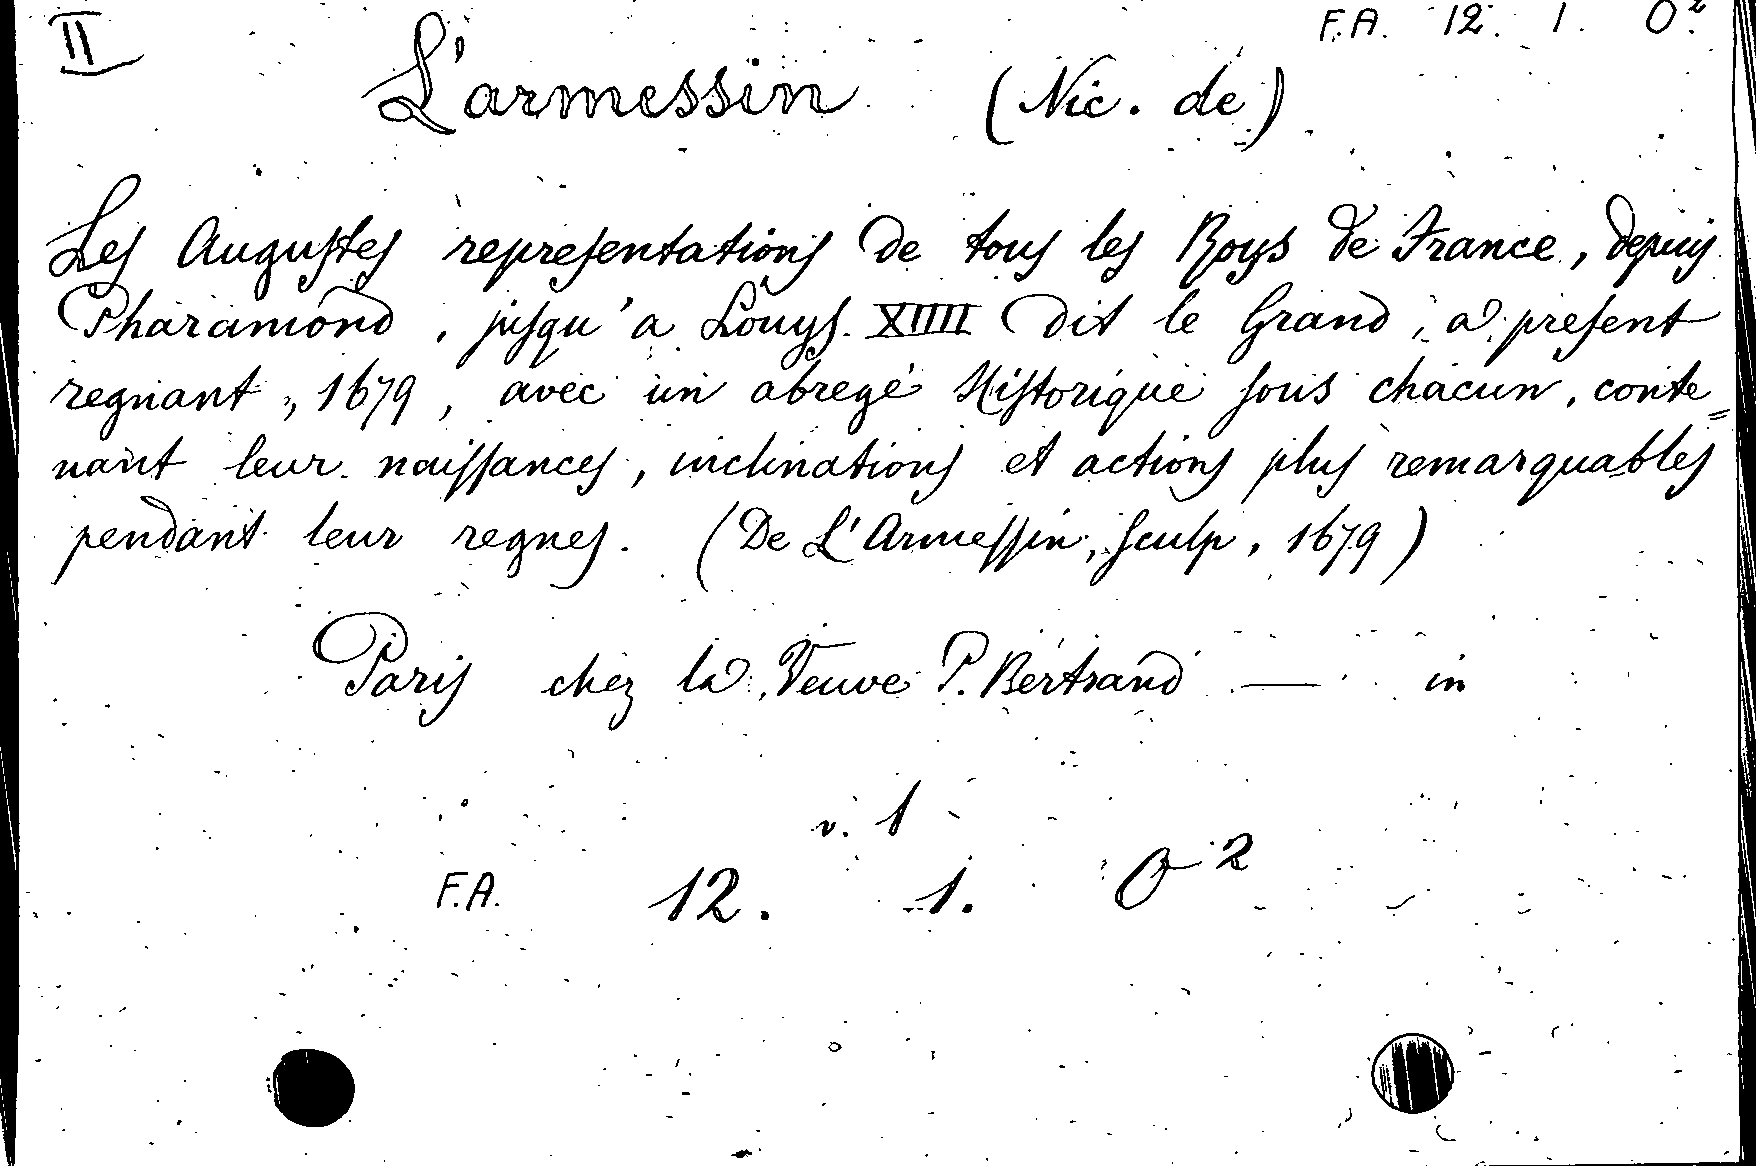 II
F.A. 12. 1. O².
L'armessin (Nic. de)
Les Augustes representations de tous les Roys de France, depuis
Pharamond, jusqu'a Louys XIIII dit le Grand, a present
regnant, 1679, avec un abregé Historique sous chacun, conte=
nant leur naissances, inclinations et actions plus remarquables
pendant leur regnes. (De L'Armessin, sculp, 1679)
Paris chez la Veuve P. Bertrand — in
v. 1
F.A. 12. 1. O²